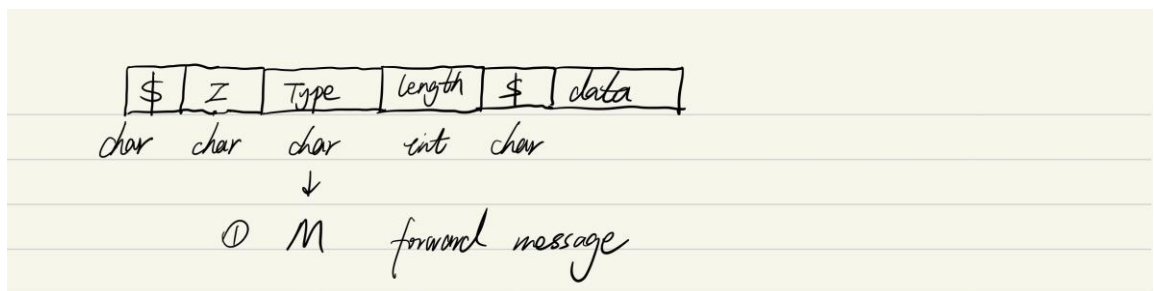 $ Z Type length $ data
char char char int char
↓
① M forward message